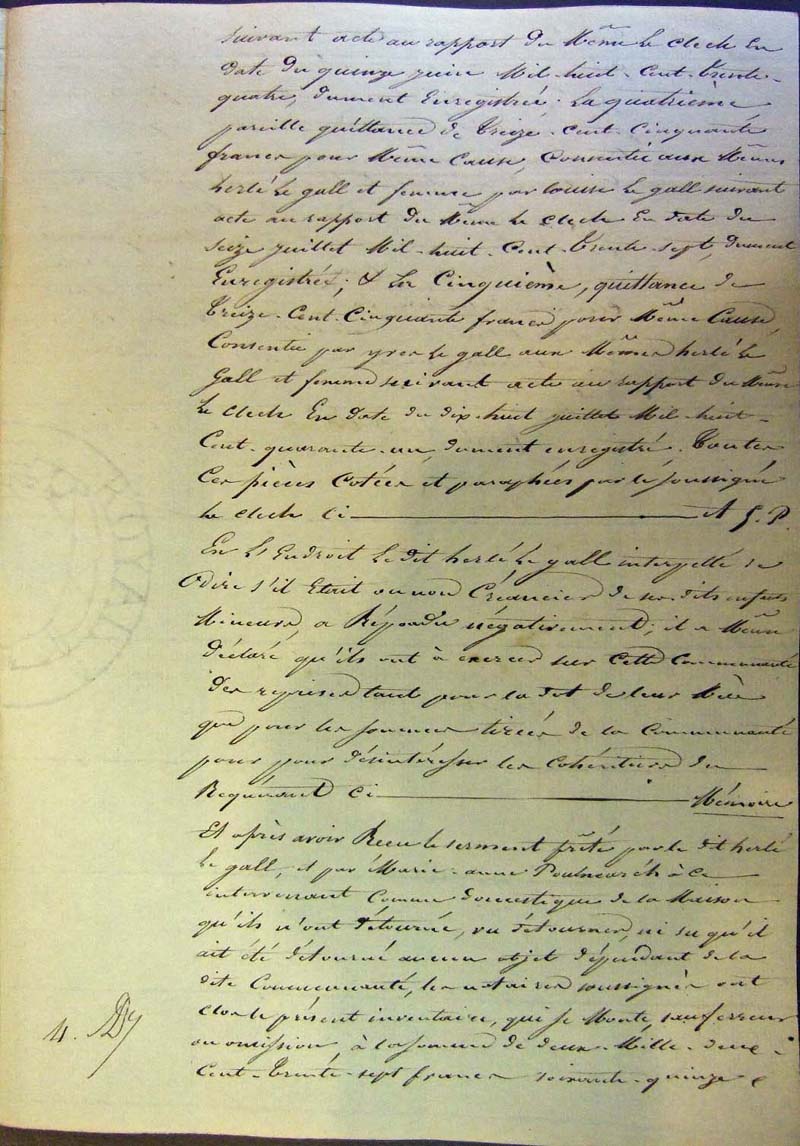 suivant acte au rapport du Même Le Clech En
date du quinze juin Mil-huit-Cent-trente-
quatre, dument Enregistrée. La quatrième
pareille quittance de Treize-Cent-Cinquante
francs pour Même Cause, Consentie aux Mêmes
herlé Le gall et femme par louise Le gall suivant
acte au rapport du Même Le Clech En date du
seize juillet Mil-huit-Cent-trente-sept, dument
Enregistrée; & La Cinquième, quittance de
Treize-Cent-Cinquante francs pour Même Cause,
Consentie par yves Le gall aux Mêmes herlé Le
Gall et femme suivant acte au rapport du Même
Le Clech En date du dix-huit juillet Mil-huit-
Cent-quarante-un, dument enregistré. Toutes
Ces pièces Cotées et paraphées par le soussigné
Le Clech Ci
En Lt Endroit Le dit herlé Le gall interpellé de
Dire s'il Etait ou non Créancier de ses dits enfants
Mineurs, a Répondu négativement; il a Même
Déclaré qu'ils ont à exercer sur Cette Communauté
Des reprises tant pour la dot de leur Mère
que pour les sommes tirées de la Communauté
pour pour désintéresser les Cohéritiers du
Requérant Ci Mémoire
Et après avoir Recu le serment prêté par le dit herlé
Le gall, et par Marie-anne à Ce
intervenant Comme Domestique de la Maison
qu'ils n'ont détourné, vu détourner, ni su qu'il
ait été détourné aucun objet dépendant de la
dite Communauté, les notaires soussignés ont
Clos le présent inventaire, qui se Monte, sauf erreur
ou omission, à la somme de deux-Mille-deux-
Cent-Trente-sept francs soixante-quinze c
4.